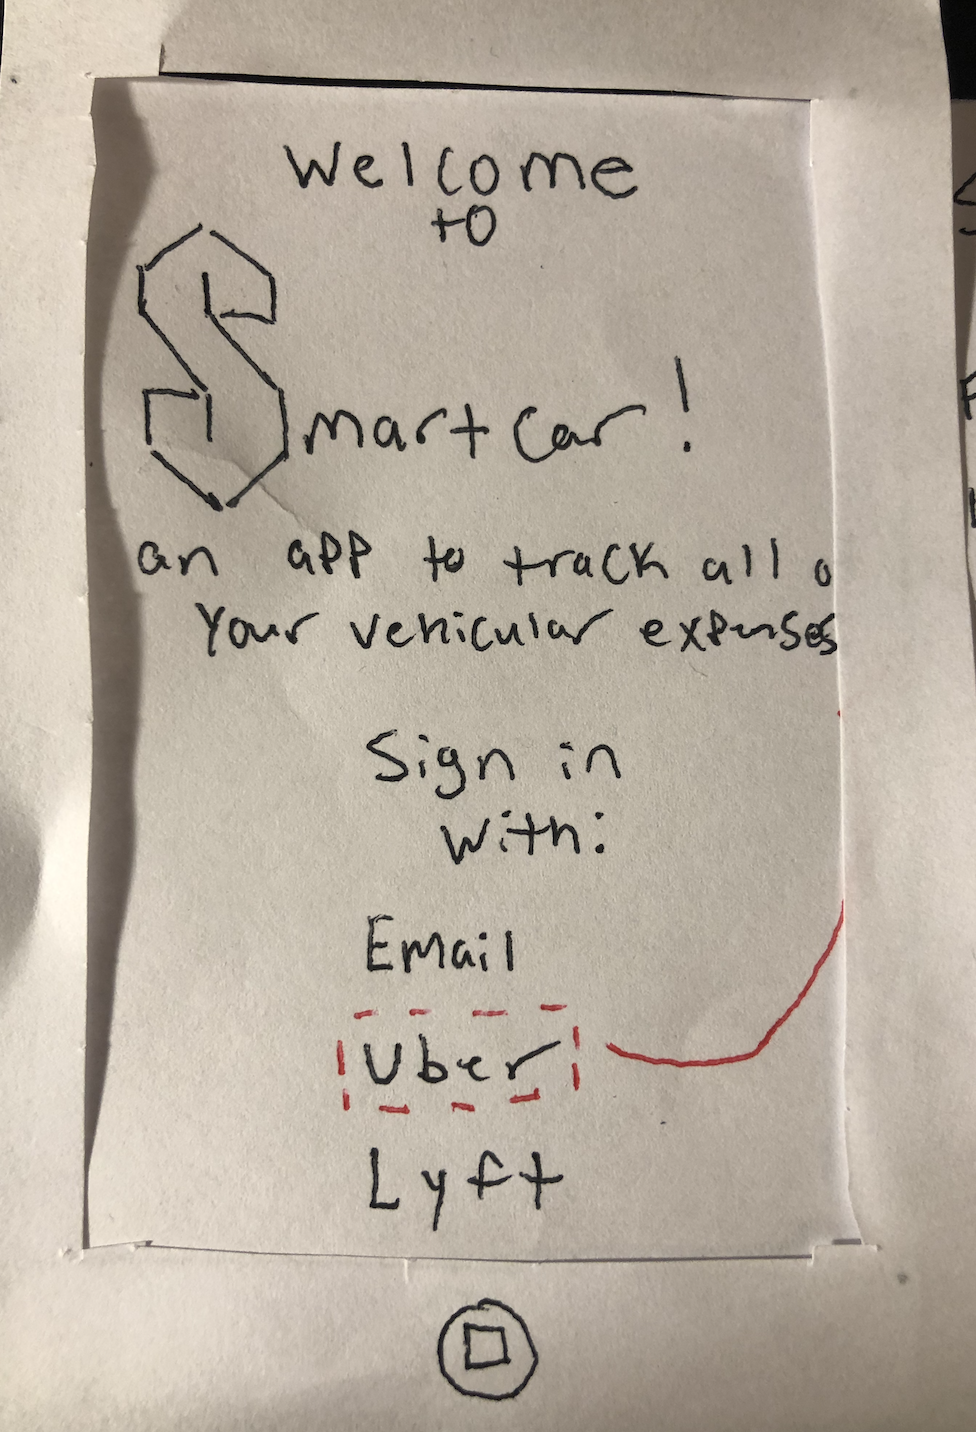 Welcome
to
Smartcar!
an app to track all o
Your vehicular expenses
Sign in
with:
Email
Uber
Lyft